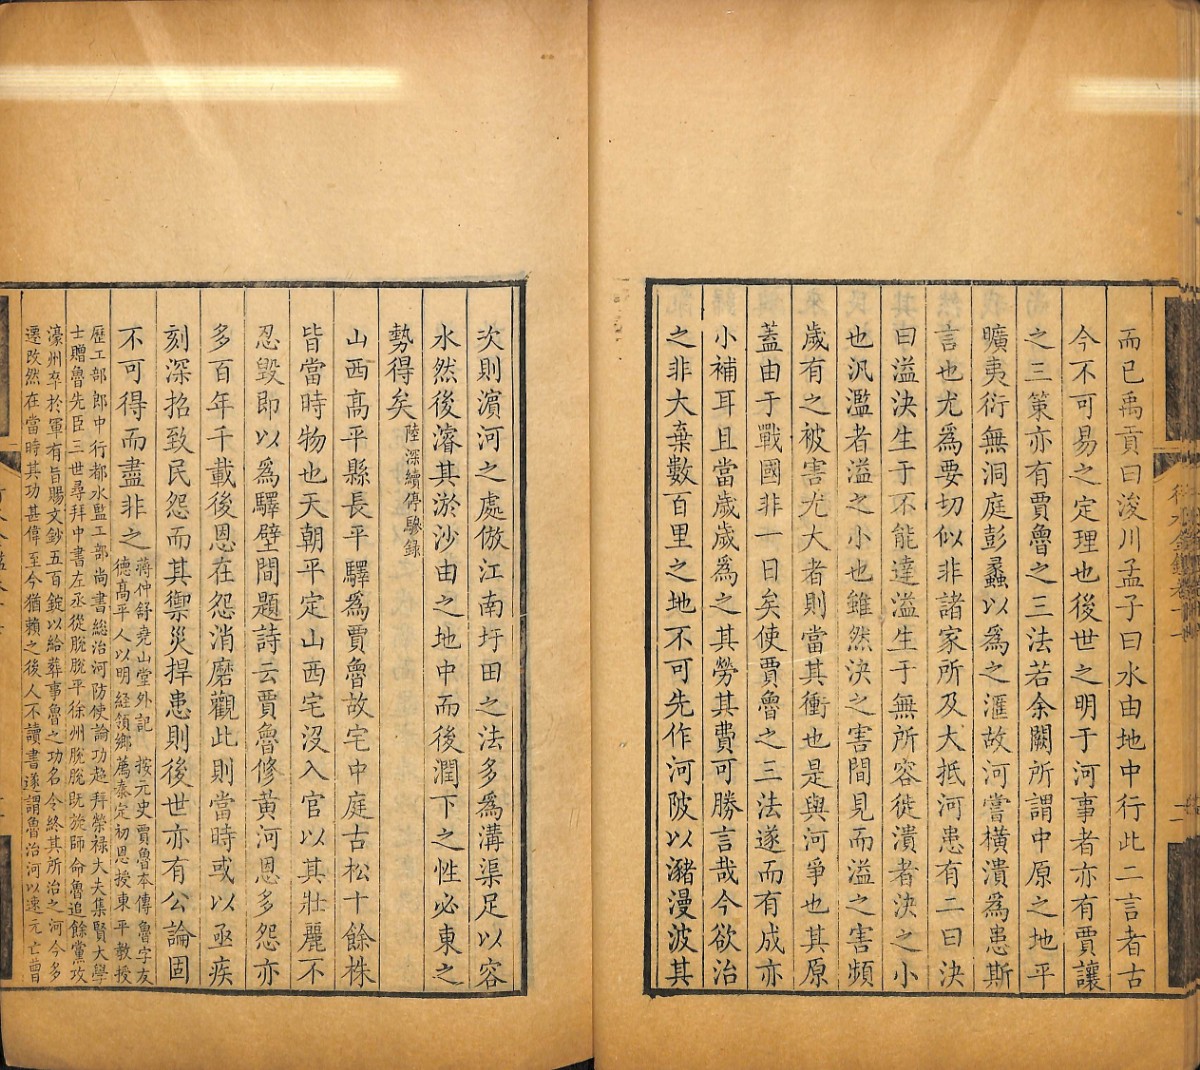 而已禹貢曰浚川孟子曰水由地中行此二言者古
今不可易之定理也後世之明于河事者亦有賈讓
之三策亦有賈魯之三法若余闕所謂中原之地平
曠夷衍無洞庭彭蠡以為之滙故河嘗橫潰為患斯
言也尤為要切似非諸家所及大抵河患有二曰決
曰溢決生于不能達溢生于無所容徙潰者決之小
也汎濫者溢之小也雖然決之害間見而溢之害頻
歲有之被害尤大者則當其衝也是與河爭也其原
蓋由于戰國非一日矣使賈魯之三法遂而有成亦
小補耳且當歲歲為之其勞其費可勝言哉今欲治
之非大棄數百里之地不可先作河陂以瀦漫波其
次則濵河之處倣江南圩田之法多為溝渠足以容
水然後濬其淤沙由之地中而後潤下之性必東之
勢得矣陸深續停驂錄
山西髙平縣長平驛為賈魯故宅中庭古松十餘株
皆當時物也天朝平定山西宅沒入官以其壯麗不
忍毀即以為驛壁間題詩云賈魯修黃河恩多怨亦
多百年千載後恩在怨消磨觀此則當時或以亟疾
刻深招致民怨而其禦災捍患則後世亦有公論固
不可得而盡非之蔣仲舒堯山堂外記 按元史賈魯本傳魯字友
德髙平人以明經領鄉薦泰定初恩授東平教授
歷工部郎中行都水監工部尚書総治河防使論功超拜榮祿大夫集賢大學
士贈魯先臣三世尋拜中書左丞從脫脫平徐州脫脫旣旋師命魯追餘黨攻
濠州卒於軍有旨賜文鈔五百錠以給葬事魯之功名令終其所治之河今多
遷改然在當時其功甚偉至今猶賴之後人不讀書遂謂魯治河以速元亡曾